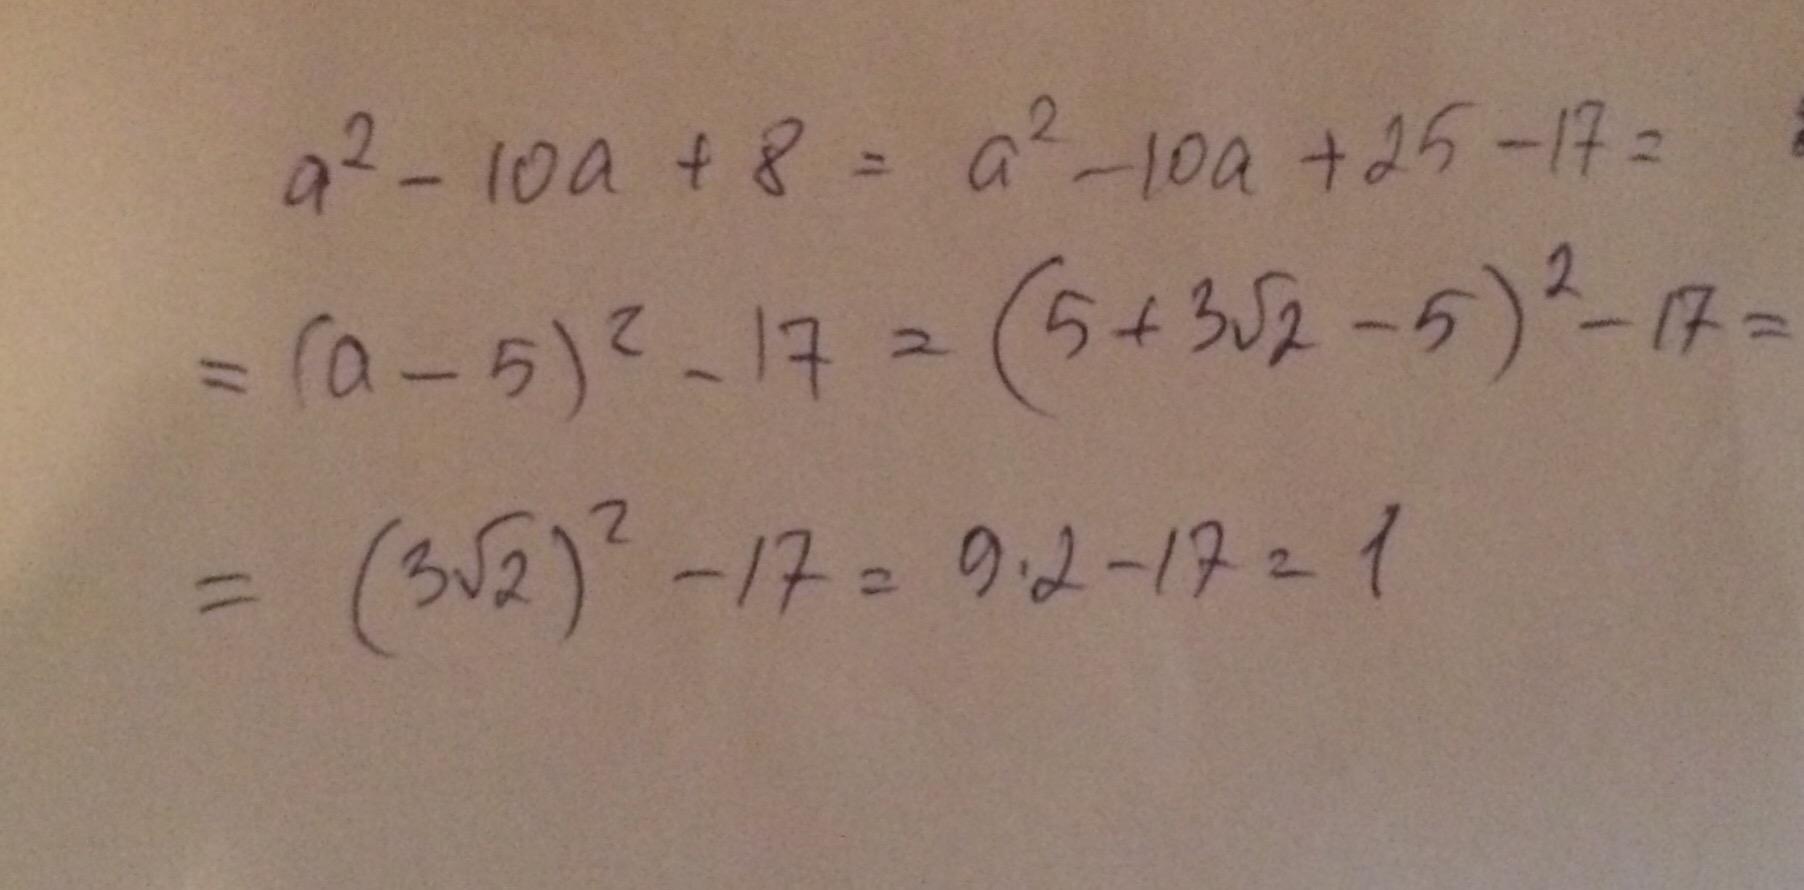 a² - 10a + 8 = a² - 10a + 25 - 17 =
= (a - 5)² - 17 = (5 + 3√2 - 5)² - 17 =
= (3√2)² - 17 = 9·2 - 17 = 1